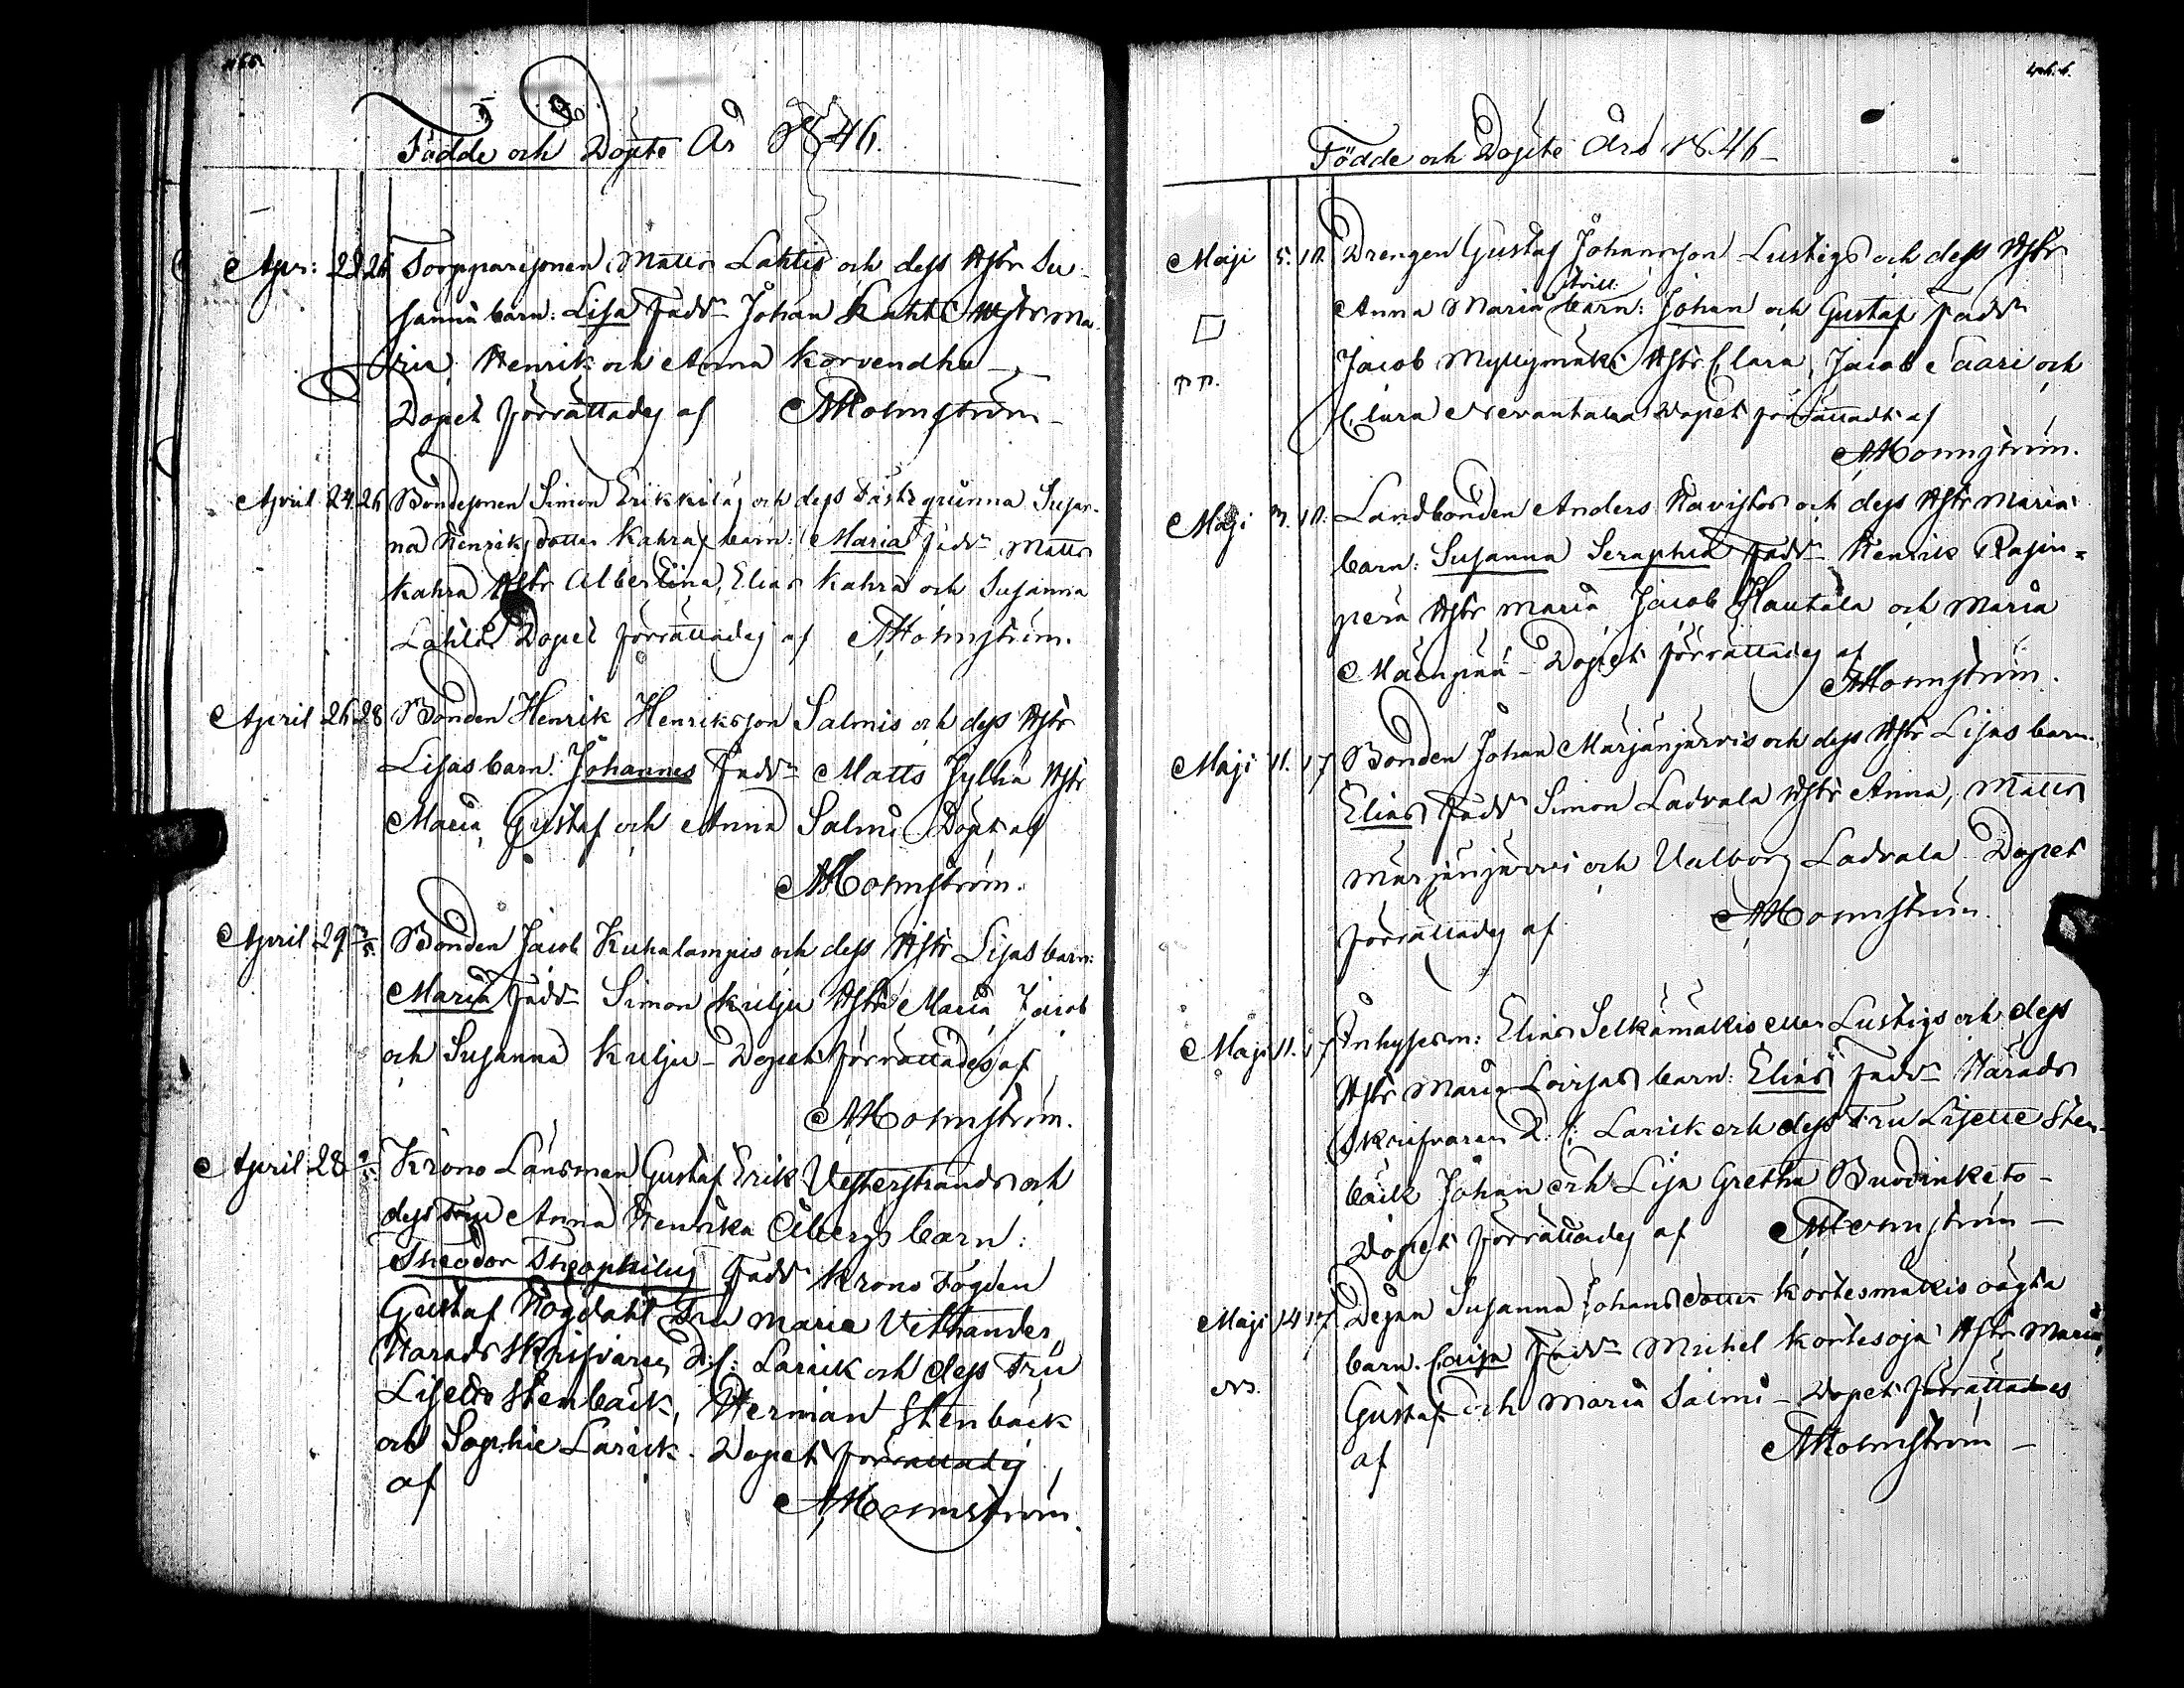 Födde och Döpte År 1846.
Apr: 22 26 Torpparesonen Matts Lahtis och dess Hstr Su-
sanna barn: Lisa Faddr Johan Lahti Hstr Ma-
ria Henrik och Anna Korvendhu
Dopet förrättades af AHolmström
April 24 26 Bondesonen Simon Erikkiläs och dess Fästeqwinna Susan-
na Henriksdotter Kahras barn: Maria Faddr Matts
Kahra Hstr Albertina, Elias Kahra och Susanna
Lahti Dopet förrättades af AHolmström.
April 26 28 Bonden Henrik Henriksson Salmis och dess Hstr
Lisas barn: Johannes Faddr Matts Jylhä Hstr
Maria, Gustaf och Anna Salmi Döpt af
AHolmström.
April 29 3/5. Bonden Jacob Kuhalampis och dess Hstr Lisas barn:
Maria Faddr Simon Kulju Hstr Maria Jacob
och Susanna Kulju – Dopet förrättades af
AHolmström.
April 28 Krono Länsman Gustaf Erik Vesterstrands och
dess Fru Anna Henrika Åbergs barn:
Theodor Theophilus Faddr Krono Fogden
Gustaf Högdahl Fru Maria Vethander,
Härads Skrifvaren d: f: Larick och dess Fru
Lisette Stenbäck, Herman Stenbäck
och Sophie Larick. Dopet förrättades
af AHolmström.
Födde och Döpte Års 1846
Maji 5. 10. Drengen Gustaf Johansson Lustigs och dess Hstr
trill.
Anna Maria barn: Johan och Gustaf Faddr
Jacob Myllymäki Hstr Clara, Jacob Saari och
Clara Nevantaka Dopet förrättadt af
AHolmström.
Maji 3. 10. Landbonden Anders Havistos och dess Hstr Maria
barn: Susanna Seraphia Faddr Henrik Rasin=
perä Hstr Maria Jacob Hautala och Maria
Mäenpää – Dopet förrättades af
AHolmström.
Maji 11. 17 Bonden Johan Marjänjärvis och dess Hstr Lisas barn:
Elias Faddr Simon Ladvala Hstr Anna, Matts
Marjänjärvi och Valborg Ladvala Dopet
förrättades af AHolmström.
Maji 11. 17 Inhysesm: Elias Selkämäkis eller Lustigs och dess
Hstr Maria Lovisas barn: Elias Faddr Härads
Skrifvaren d: f: Larick och dess Fru Lisette Sten-
bäck Johan och Lisa Gretha Buddinketo –
Dopet förrättades af AHolmström –
Maji 14 17 Dejan Susanna Johansdotter Kortesmäkis oägta
barn. Caisa Faddr Michel Kortesoja Hstr Maria,
Gustaf och Maria Salmi – Dopet förrättades
af AHolmström –